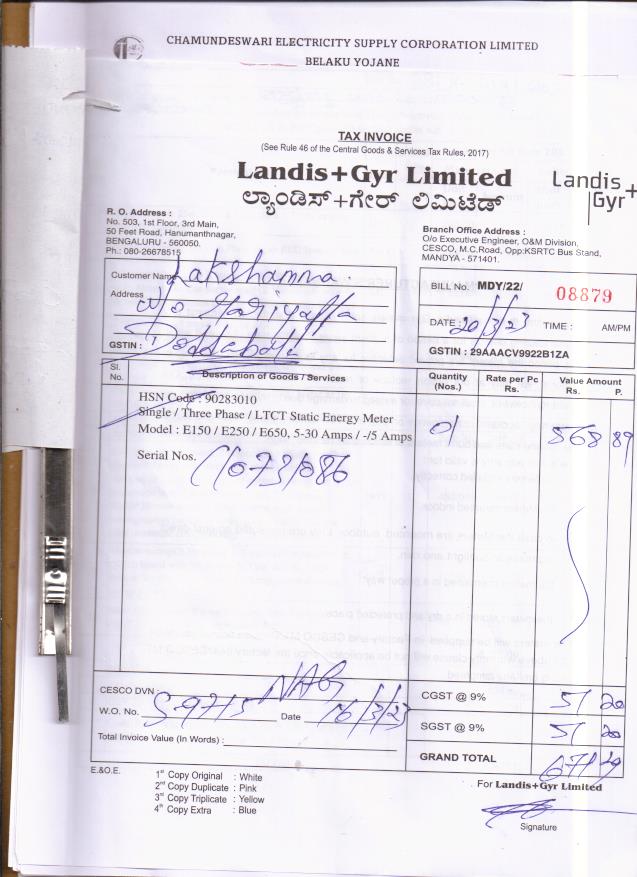 CHAMUNDESWARI ELECTRICITY SUPPLY CORPORATION LIMITED
BELAKU YOJANE
TAX INVOICE
(See Rule 46 of the Central Goods & Services Tax Rules, 2017)
Landis+Gyr Limited
Landis+
Gyr
ಲ್ಯಾಂಡಿಸ್+ಗೇರ್ ಲಿಮಿಟೆಡ್
R. O. Address :
No. 503, 1st Floor, 3rd Main,
50 Feet Road, Hanumanthnagar,
BENGALURU - 560050.
Ph.: 080-26678515
Branch Office Address :
O/o Executive Engineer, O&M Division,
CESCO, M.C.Road, Opp:KSRTC Bus Stand,
MANDYA - 571401.
Customer Name Lakshamma
Address
GSTIN :
BILL No. MDY/22/ 08879
DATE : 20/3/23 TIME : AM/PM
GSTIN : 29AAACV9922B1ZA
Sl. No. Description of Goods / Services Quantity (Nos.) Rate per Pc Rs. Value Amount Rs. P.
HSN Code : 90283010
Single / Three Phase / LTCT Static Energy Meter
Model : E150 / E250 / E650, 5-30 Amps / -/5 Amps 01 568 89
Serial Nos.
CESCO DVN : NAG
W.O. No. Date 16/3/23
Total Invoice Value (In Words) :
CGST @ 9% 51 20
SGST @ 9% 51 20
GRAND TOTAL 671 29
E.&O.E.
1st Copy Original : White
2nd Copy Duplicate : Pink
3rd Copy Triplicate : Yellow
4th Copy Extra : Blue
For Landis+Gyr Limited
Signature